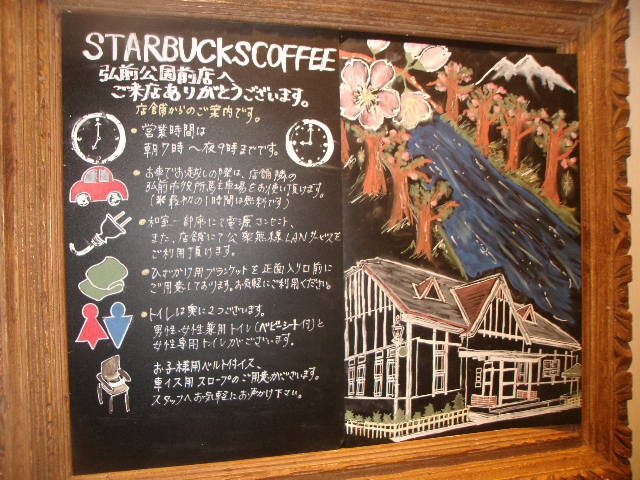 STARBUCKSCOFFEE
弘前公園前店へ
ご来店ありがとうございます。
店舗からのご案内です。
営業時間は
朝7時〜夜9時までです。
お車でお越しの際は、店舗隣の
弘前市役所駐車場をお使い頂けます。
(※最初の1時間は無料です)
和室一部席にて電源コンセント、
また、店舗にて公衆無線LANサービスを
ご利用頂けます。
ひざかけ用ブランケットを正面入り口前に
ご用意しております。お気軽にご利用ください。
トイレは奥に2つございます。
男性・女性兼用トイレ(ベビーシート付)と
女性専用トイレがございます。
お子様用ベルト付イス、
車イス用スロープのご用意がございます。
スタッフへお気軽にお声がけ下さい。